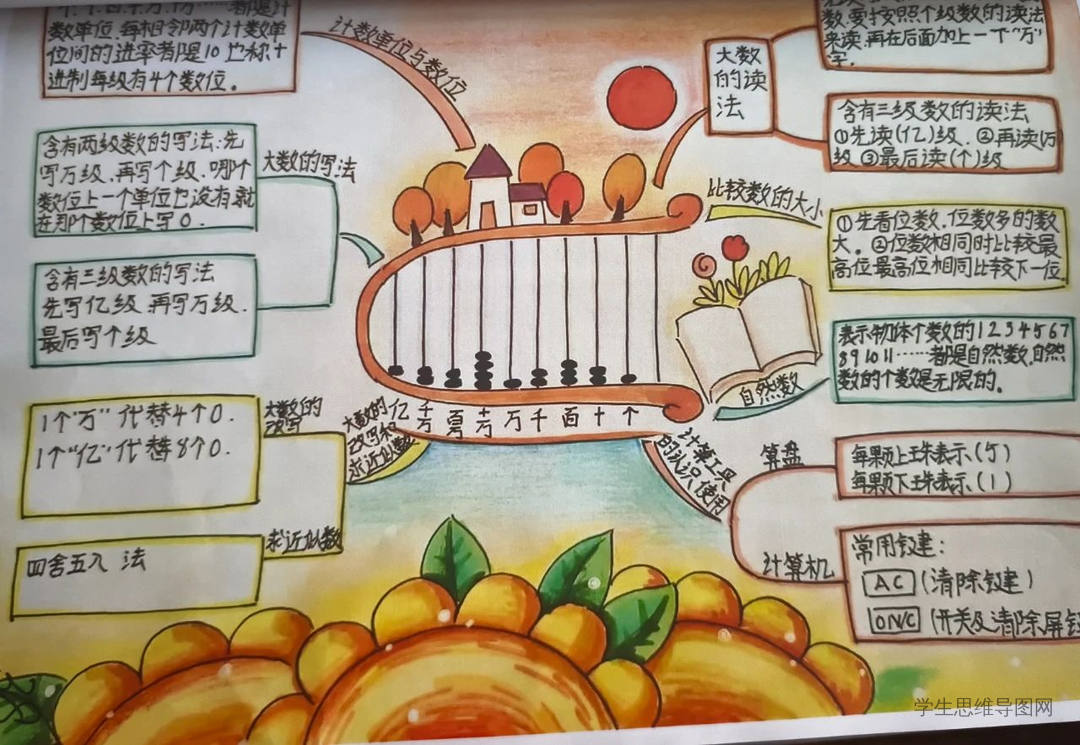 数单位,每相邻两个计数单
位间的进率都是10也称十
进制每级有4个数位。
计数单位与数位
含有两级数的写法:先
写万级、再写个级、哪个
数位上一个单位也没有,就
在那个数位上写0.
大数的写法
含有三级数的写法
先写亿级、再写万级、
最后写个级
1个“万”代替4个0.
1个“亿”代替8个0.
大数的
改写
四舍五入 法
求近似数
大数的
改写和
求近似数
亿 千万 百万 十万 万 千 百 十 个
大数
的读
法
数,要按照个级数的读法
来读,再在后面加上一个“万”
字.
含有三级数的读法
①先读(亿)级、②再读(万)
级 ③最后读(个)级
比较数的大小
①先看位数,位数多的数
大。②位数相同时比较最
高位,最高位相同比较下一位.
自然数
表示物体个数的1234567
891011……都是自然数,自然
数的个数是无限的.
计算工具
的认识使用
算盘
每颗上珠表示(5)
每颗下珠表示(1)
计算机
常用键:
AC(清除键)
ON/C(开关及清除屏键
学生思维导图网